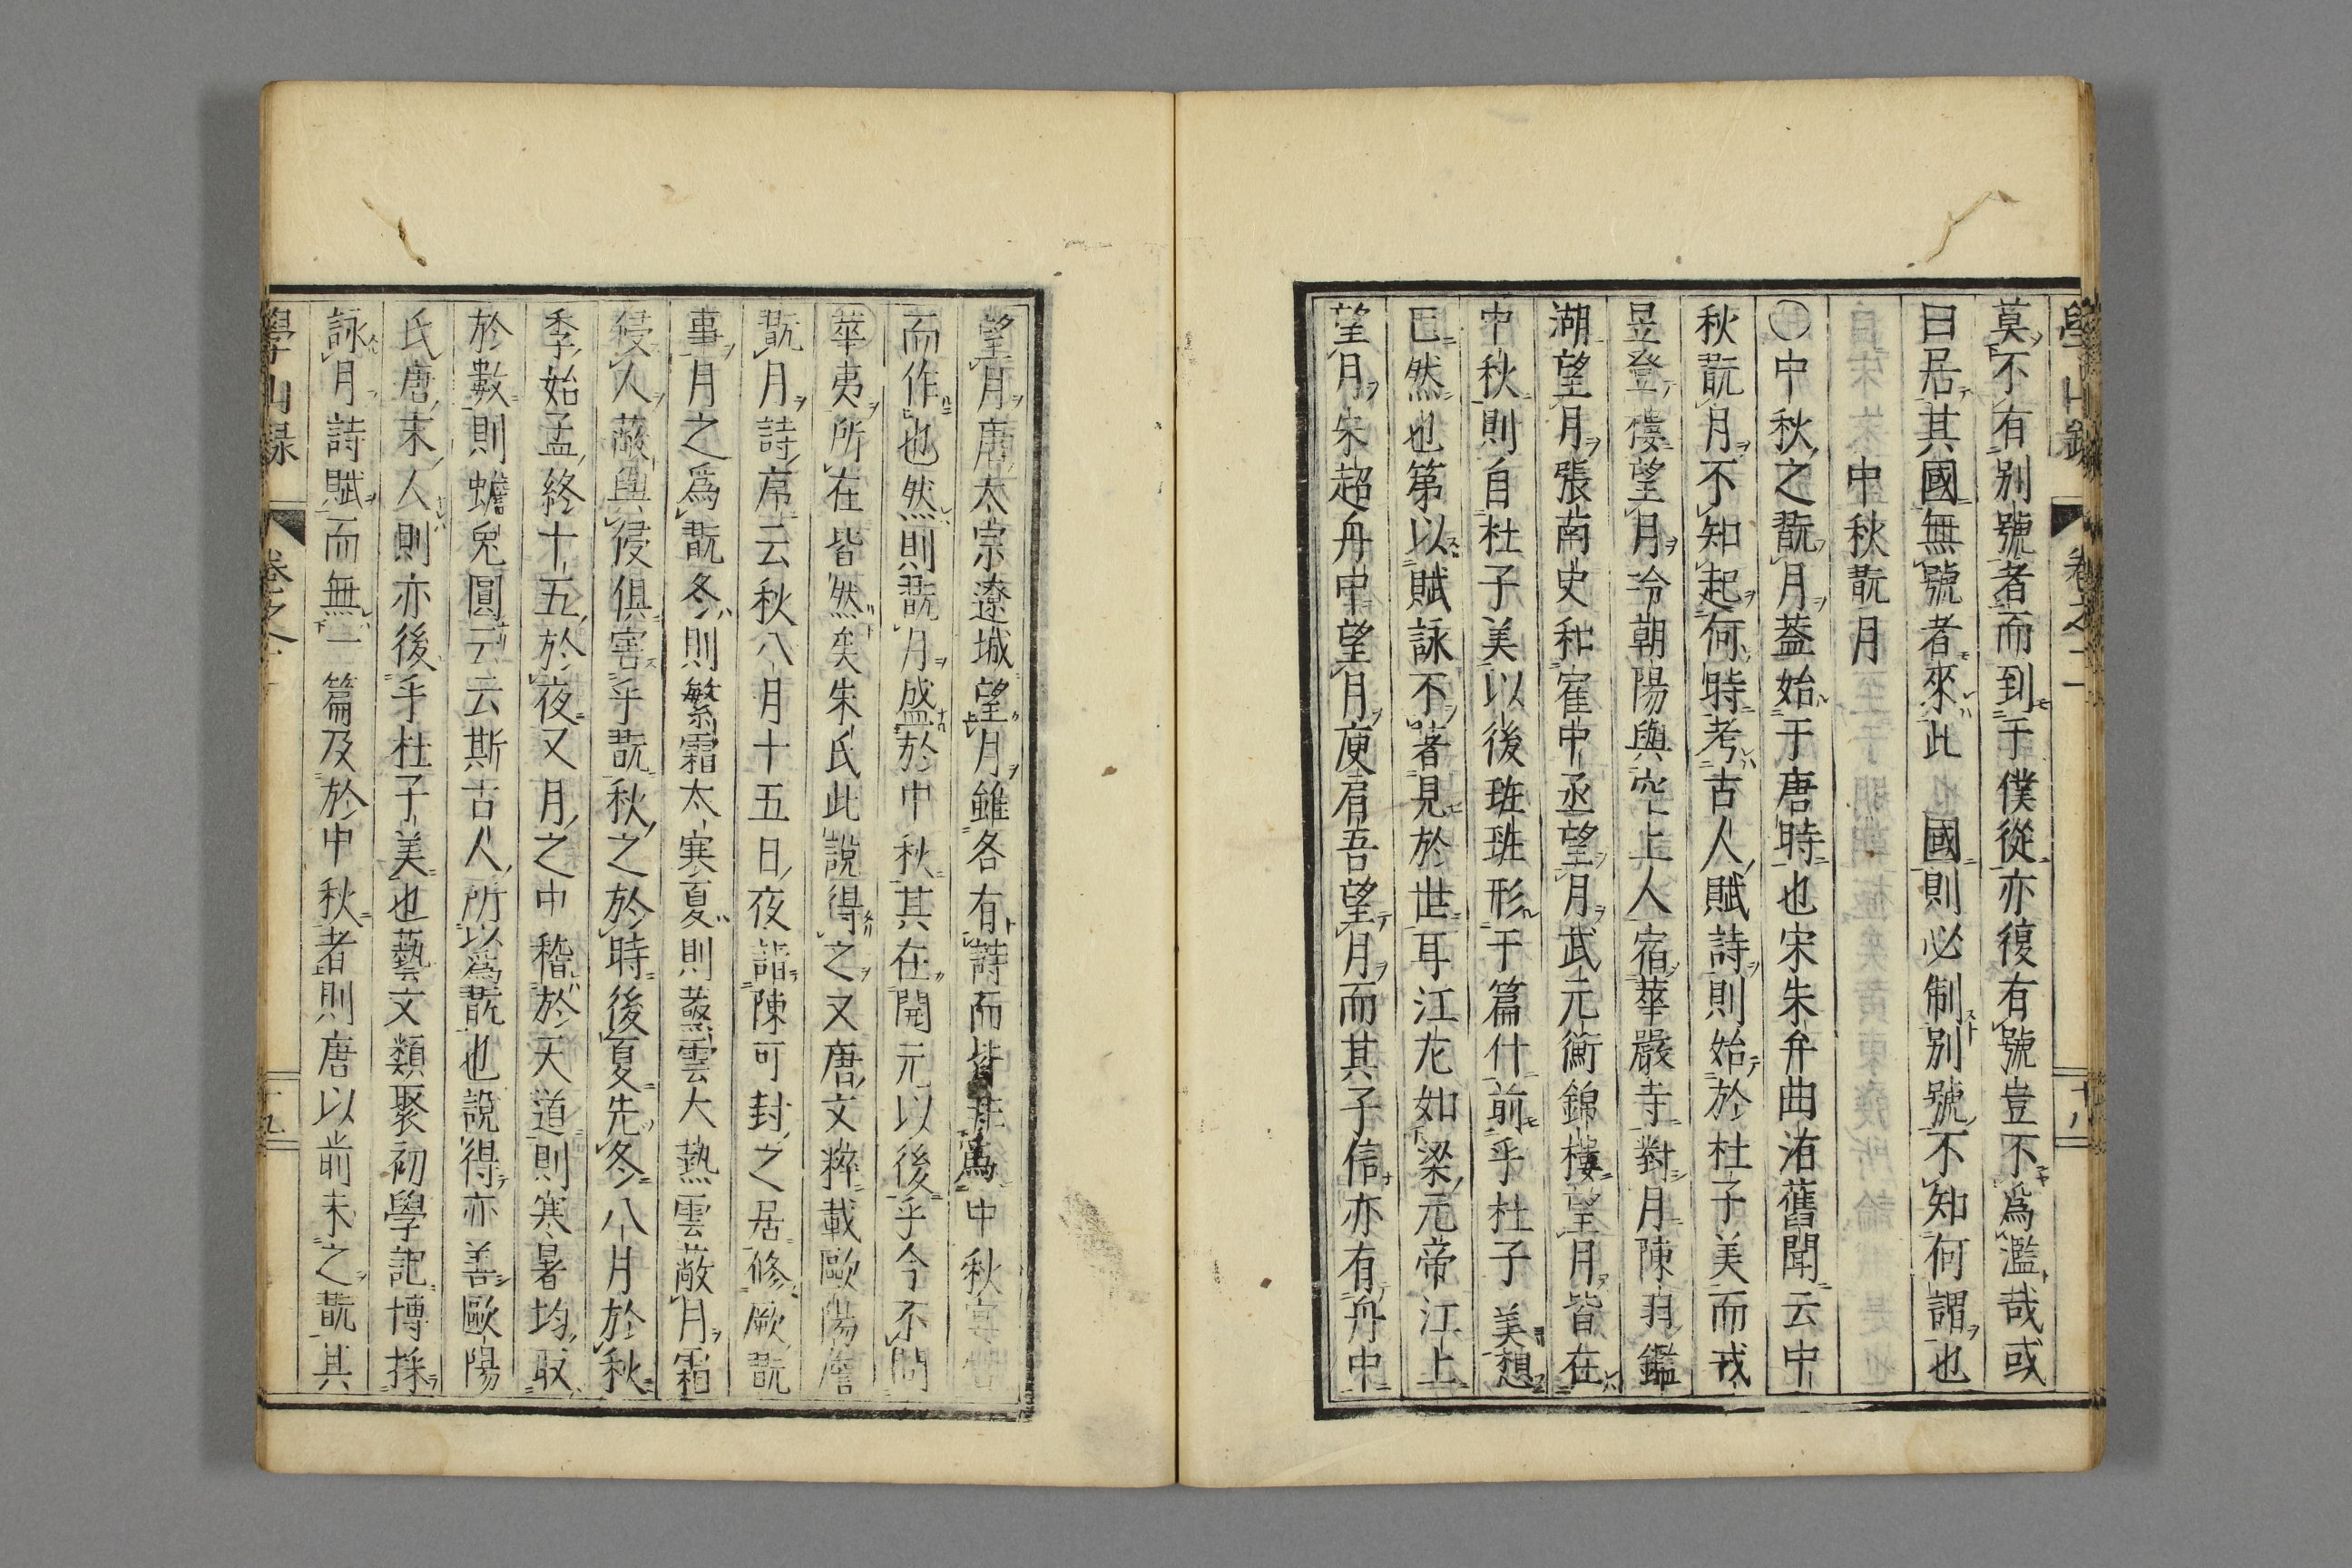 學山錄　卷之二　十八
莫不有別號者而到于僕從亦復有號豈不爲濫哉或
曰居其國無號者來此國則必制別號不知何謂也
中秋翫月
○中秋之翫月葢始于唐時也宋朱弁曲洧舊聞云中
秋翫月不知起何時考古人賦詩則始於杜子美而戎
昱登樓望月冷朝陽與空上人宿華嚴寺對月陳羽鑑
湖望月張南史和崔中丞望月武元衡錦樓望月皆在
中秋則自杜子美以後班班形于篇什前乎杜子美想
已然也第以賦詠不著見於世耳江左如梁元帝江上
望月朱超舟中望月庾肩吾望月而其子信亦有舟中
望月唐太宗遼城望月雖各有詩而皆非爲中秋宴賞
而作也然則翫月盛於中秋其在開元以後乎今不問
華夷所在皆然矣朱氏此說得之又唐文粹載歐陽詹
翫月詩席云秋八月十五日夜詣陳可封之居修厥翫
事月之爲翫冬則繁霜太寒夏則蒸雲大熱雲蔽月霜
侵人蔽與侵俱害乎翫秋之於時後夏先冬八月於秋
季始孟終十五於夜又月之中稽於天道則寒暑均取
於數則蟾兔圓云云斯古人所以爲翫也說得亦善歐陽
氏唐末人則亦後乎杜子美也藝文類聚初學記博採
詠月詩賦而無一篇及於中秋者則唐以前未之翫其
學山錄　卷之二